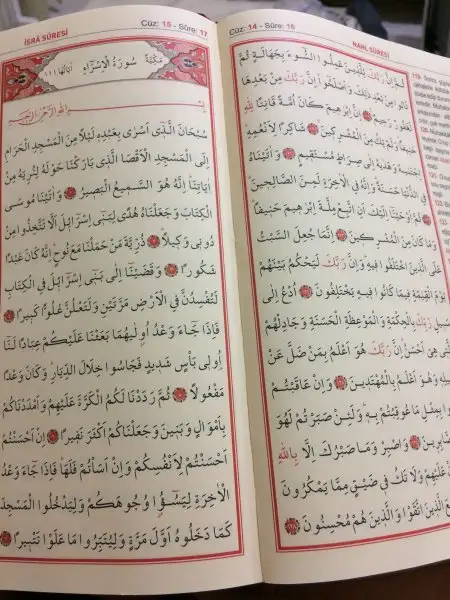 Cüz: 14 - Sûre: 16 NAHL SÛRESİ
ثُمَّ اِنَّ رَبَّكَ لِلَّذِينَ عَمِلُوا السُّوءَ بِجَهَالَةٍ ثُمَّ
تَابُوا مِنْ بَعْدِ ذٰلِكَ وَاَصْلَحُوا اِنَّ رَبَّكَ مِنْ بَعْدِهَا
لَغَفُورٌ رَحِيمٌ ﴿١١٩﴾ اِنَّ اِبْرٰهِيمَ كَانَ اُمَّةً قَانِتًا لِلّٰهِ
حَنِيفًا وَلَمْ يَكُ مِنَ الْمُشْرِكِينَ ﴿١٢٠﴾ شَاكِرًا لِاَنْعُمِهِ
اِجْتَبٰيهُ وَهَدٰيهُ اِلٰى صِرَاطٍ مُسْتَقِيمٍ ﴿١٢١﴾ وَاٰتَيْنَاهُ
فِي الدُّنْيَا حَسَنَةً وَاِنَّهُ فِي الْاٰخِرَةِ لَمِنَ الصَّالِحِينَ
ثُمَّ اَوْحَيْنَا اِلَيْكَ اَنِ اتَّبِعْ مِلَّةَ اِبْرٰهِيمَ حَنِيفًا
وَمَا كَانَ مِنَ الْمُشْرِكِينَ ﴿١٢٣﴾ اِنَّمَا جُعِلَ السَّبْتُ
عَلَى الَّذِينَ اخْتَلَفُوا فِيهِ وَاِنَّ رَبَّكَ لَيَحْكُمُ بَيْنَهُمْ
يَوْمَ الْقِيٰمَةِ فِيمَا كَانُوا فِيهِ يَخْتَلِفُونَ ﴿١٢٤﴾ اُدْعُ اِلٰى
سَبِيلِ رَبِّكَ بِالْحِكْمَةِ وَالْمَوْعِظَةِ الْحَسَنَةِ وَجَادِلْهُمْ
هِيَ اَحْسَنُ اِنَّ رَبَّكَ هُوَ اَعْلَمُ بِمَنْ ضَلَّ عَنْ
وَهُوَ اَعْلَمُ بِالْمُهْتَدِينَ ﴿١٢٥﴾ وَاِنْ عَاقَبْتُمْ
بِمِثْلِ مَا عُوقِبْتُمْ بِهِ وَلَئِنْ صَبَرْتُمْ لَهُوَ
﴿١٢٦﴾ وَاصْبِرْ وَمَا صَبْرُكَ اِلَّا بِاللّٰهِ
عَلَيْهِمْ وَلَا تَكُ فِي ضَيْقٍ مِمَّا يَمْكُرُونَ
الَّذِينَ اتَّقَوْا وَالَّذِينَ هُمْ مُحْسِنُونَ ﴿١٢٨﴾
İSRÂ SÛRESİ Cüz: 15 - Sûre: 17
مَكِّيَّةٌ سُورَةُ الْاِسْرَاءِ اٰيَاتُهَا ١١١
بِسْمِ اللّٰهِ الرَّحْمٰنِ الرَّحِيمِ
سُبْحَانَ الَّذِي اَسْرٰى بِعَبْدِهِ لَيْلًا مِنَ الْمَسْجِدِ الْحَرَامِ
اِلَى الْمَسْجِدِ الْاَقْصَا الَّذِي بَارَكْنَا حَوْلَهُ لِنُرِيَهُ مِنْ
اٰيَاتِنَا اِنَّهُ هُوَ السَّمِيعُ الْبَصِيرُ ﴿١﴾ وَاٰتَيْنَا مُوسَى
الْكِتَابَ وَجَعَلْنَاهُ هُدًى لِبَنِي اِسْرَائِلَ اَلَّا تَتَّخِذُوا مِنْ
دُونِي وَكِيلًا ﴿٢﴾ ذُرِّيَّةَ مَنْ حَمَلْنَا مَعَ نُوحٍ اِنَّهُ كَانَ عَبْدًا
شَكُورًا ﴿٣﴾ وَقَضَيْنَا اِلٰى بَنِي اِسْرَائِلَ فِي الْكِتَابِ
لَتُفْسِدُنَّ فِي الْاَرْضِ مَرَّتَيْنِ وَلَتَعْلُنَّ عُلُوًّا كَبِيرًا ﴿٤﴾
فَاِذَا جَاءَ وَعْدُ اُولٰيهُمَا بَعَثْنَا عَلَيْكُمْ عِبَادًا لَنَا
اُولِي بَأْسٍ شَدِيدٍ فَجَاسُوا خِلَالَ الدِّيَارِ وَكَانَ وَعْدًا
مَفْعُولًا ﴿٥﴾ ثُمَّ رَدَدْنَا لَكُمُ الْكَرَّةَ عَلَيْهِمْ وَاَمْدَدْنَاكُمْ
بِاَمْوَالٍ وَبَنِينَ وَجَعَلْنَاكُمْ اَكْثَرَ نَفِيرًا ﴿٦﴾ اِنْ اَحْسَنْتُمْ
اَحْسَنْتُمْ لِاَنْفُسِكُمْ وَاِنْ اَسَأْتُمْ فَلَهَا فَاِذَا جَاءَ وَعْدُ
الْاٰخِرَةِ لِيَسُوؤُا وُجُوهَكُمْ وَلِيَدْخُلُوا الْمَسْجِدَ
كَمَا دَخَلُوهُ اَوَّلَ مَرَّةٍ وَلِيُتَبِّرُوا مَا عَلَوْا تَتْبِيرًا ﴿٧﴾